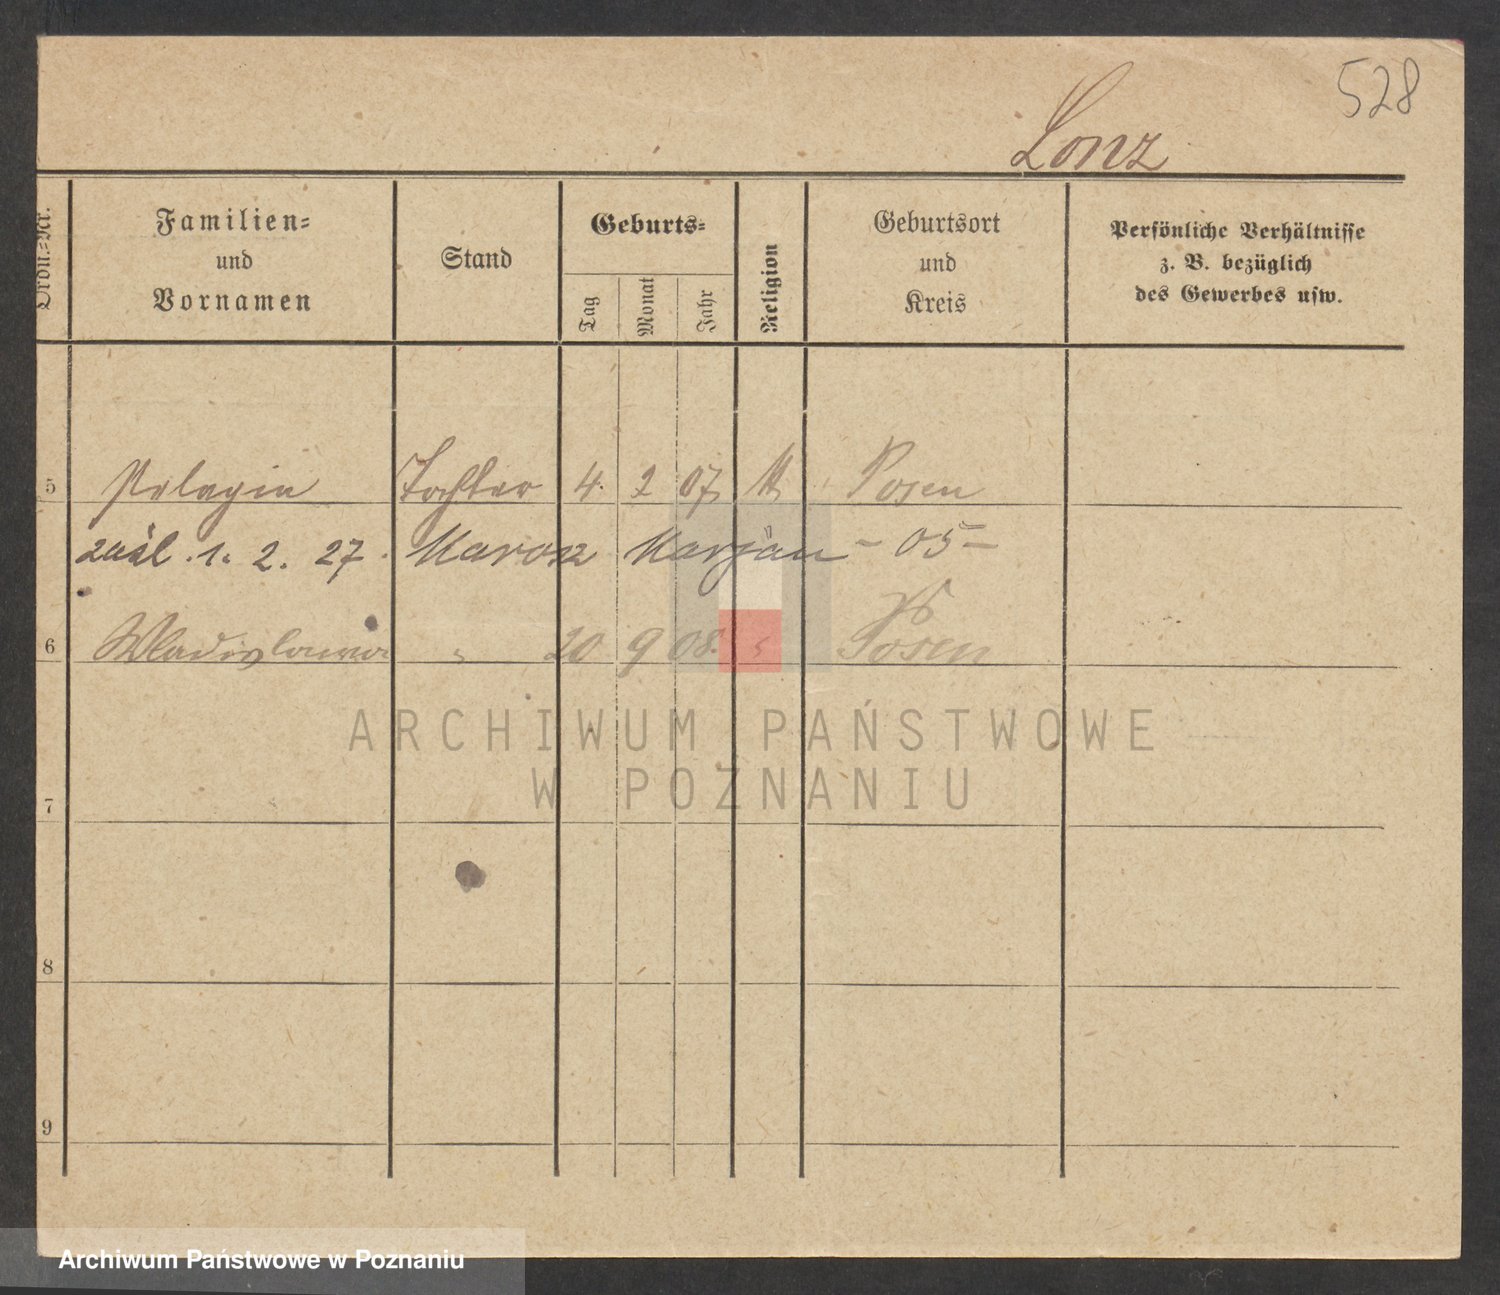 528
Lonz
Ordn.-Nr.
Familien-
und
Vornamen
Stand
Geburts-
Tag
Monat
Jahr
Religion
Geburtsort
und
Kreis
Persönliche Verhältnisse
z. B. bezüglich
des Gewerbes usw.
5 Pelagia Tochter 4. 2 07 K Posen
1. 2. 27. Marjan - 05 -
6 Wladislawa " 20 9 08. " Posen
ARCHIWUM PAŃSTWOWE
W POZNANIU
7
8
9
Archiwum Państwowe w Poznaniu